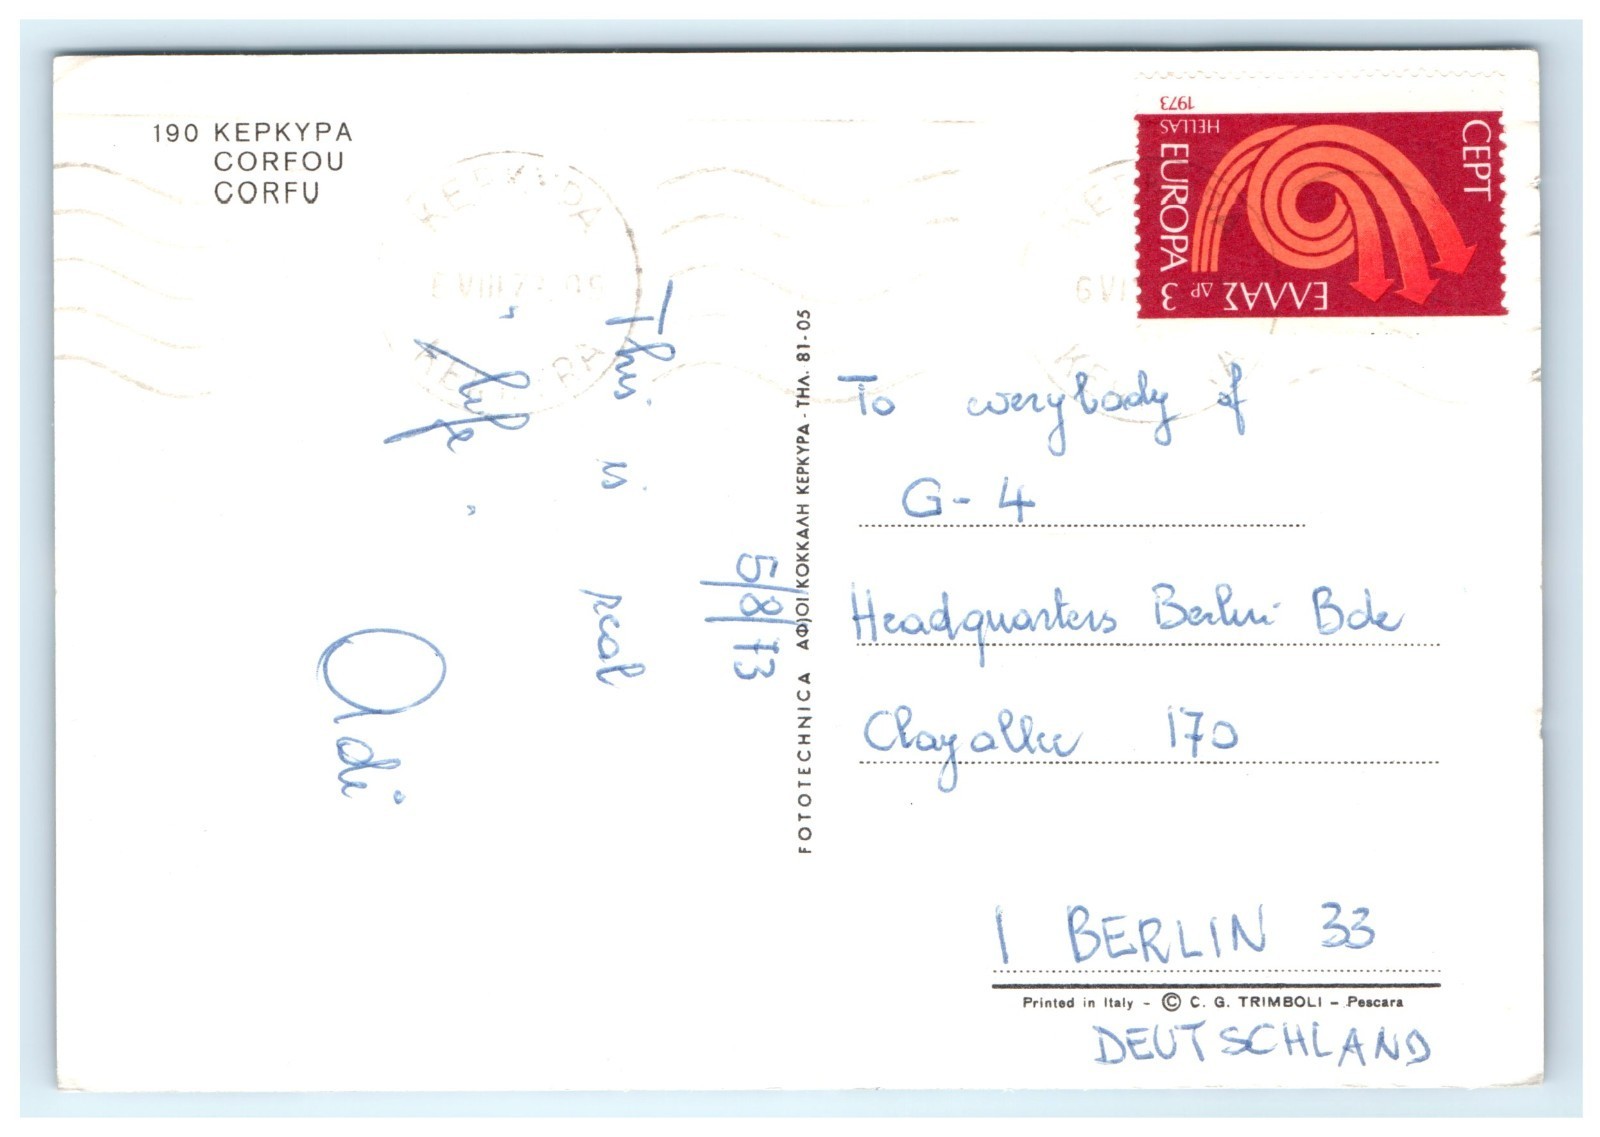 190 ΚΕΡΚΥΡΑ
CORFOU
CORFU
5/8/73
This is real
"life".
Adi
FOTOTECHNICA ΑΦ)ΟΙ ΚΟΚΚΑΛΗ ΚΕΡΚΥΡΑ - ΤΗΛ. 81-05
1973
HELLAS
EUROPA
CEPT
3 ΔΡ ΕΛΛΑΣ
ΚΕΡΚΥΡΑ
ΚΕΡΚΥΡΑ
To everybody of
G-4
Headquarters Berlin Bde
Clayallee 170
1 BERLIN 33
Printed in Italy - © C. G. TRIMBOLI - Pescara
DEUTSCHLAND